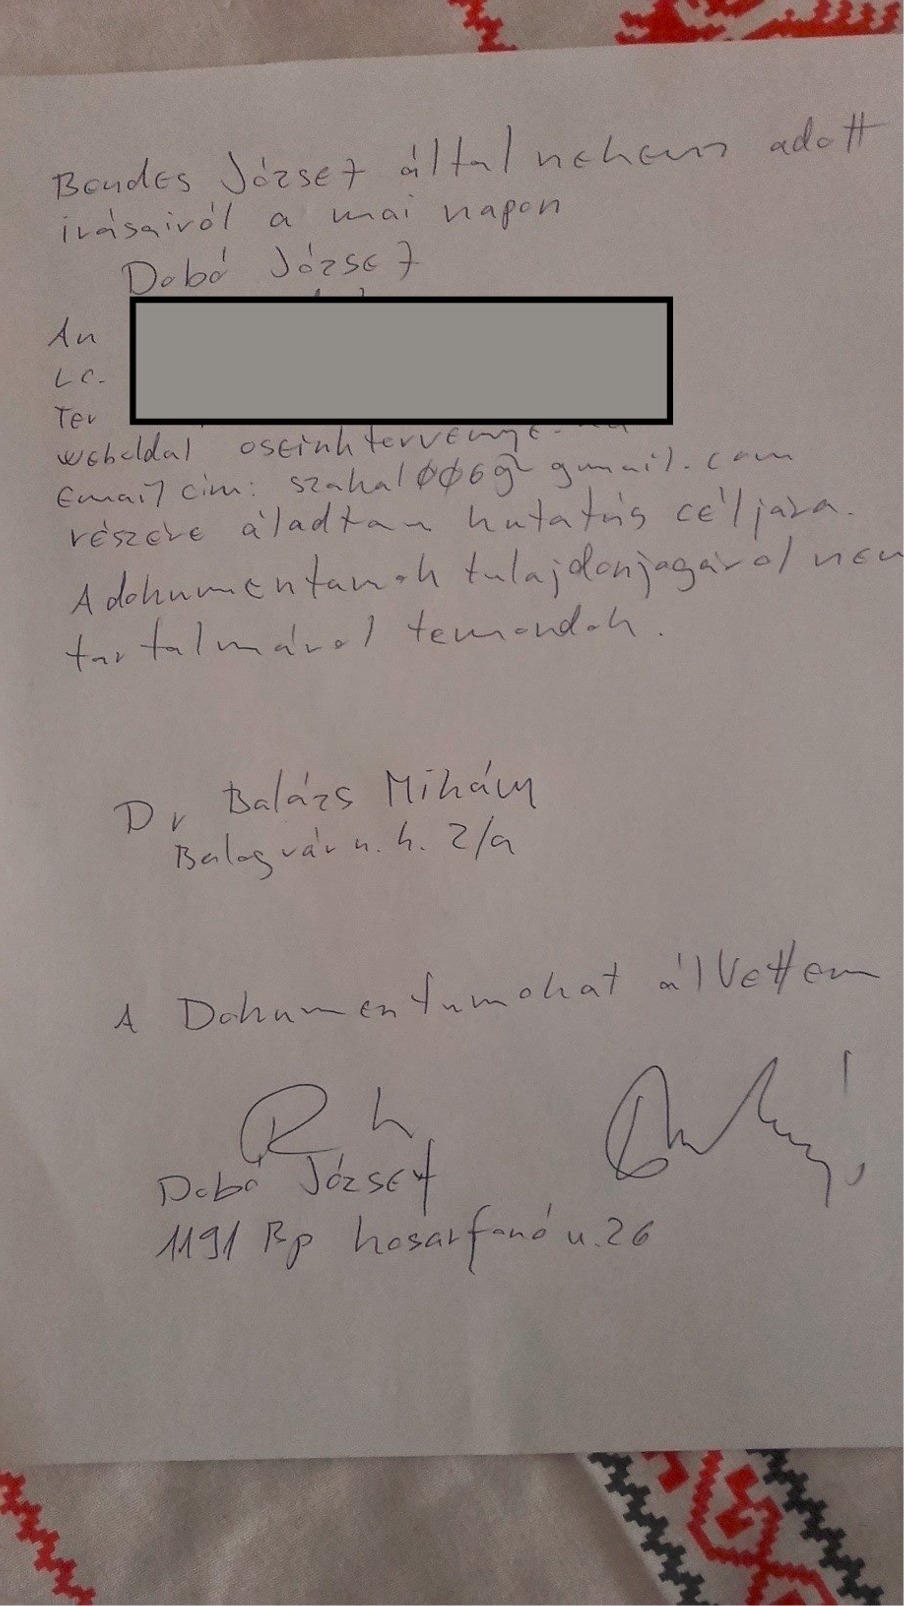 Bendes József által nekem adott
irásairól a mai napon
Dobó József
An
Lc.
Ter
weboldal oseinktervenye.hu
Email cim: szakal006@gmail.com
részére áladtam kutatás céljára.
A dokumentamok tulajdonjagárol nem
tartalmárol lemondok.
Dr Balázs Mihály
Balogvár u. k. 2/a
A Dokumentumokat álvettem
Dobó József
1191 Bp kosárfonó u. 26